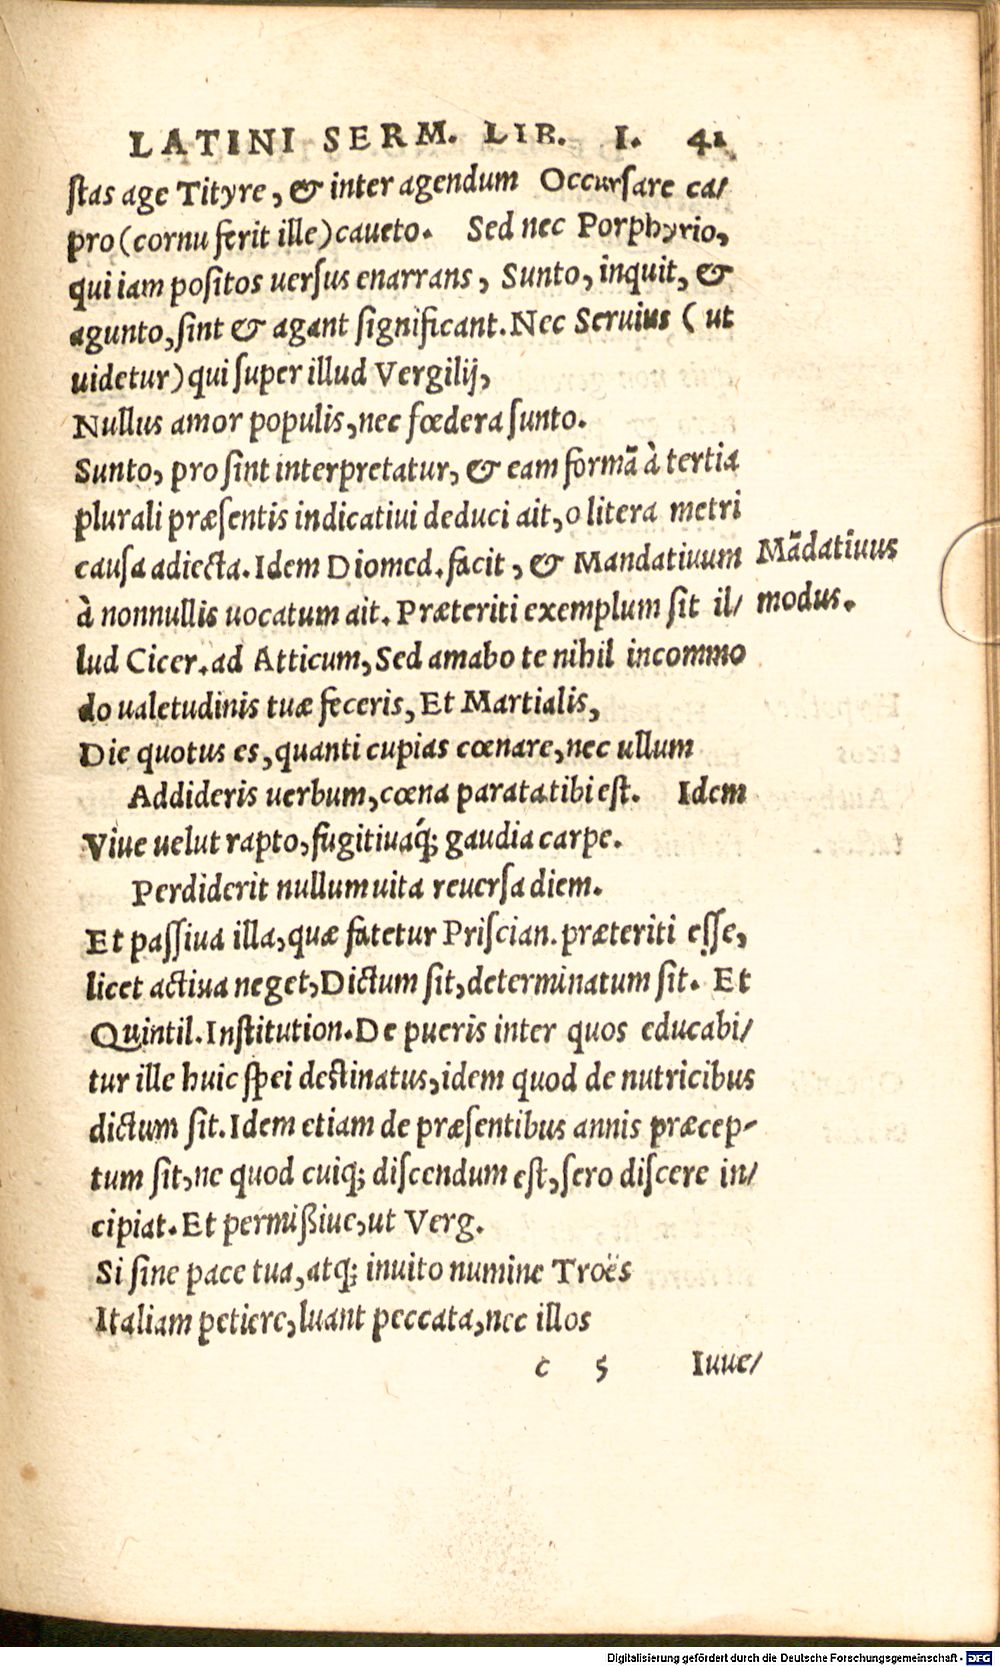 LATINI SERM. LIB. I. 41
ſtas age Tityre, & inter agendum Occurſare ca/
pro (cornu ferit ille) caueto. Sed nec Porphyrio,
qui iam poſitos uerſus enarrans, Sunto, inquit, &
agunto, ſint & agant ſignificant. Nec Seruius (ut
uidetur) qui ſuper illud Vergilij,
Nullus amor populis, nec fœdera ſunto.
Sunto, pro ſint interpretatur, & eam formā à tertia
plurali præſentis indicatiui deduci ait, o litera metri
cauſa adiecta. Idem Diomed. facit, & Mandatiuum
Mādatiuus
à nonnullis uocatum ait. Præteriti exemplum ſit il/
modus.
lud Cicer. ad Atticum, Sed amabo te nihil incommo
do ualetudinis tuæ feceris, Et Martialis,
Die quotus es, quanti cupias cœnare, nec ullum
Addideris uerbum, cœna parata tibi eſt. Idem
Viue uelut rapto, fugitiuáq; gaudia carpe.
Perdiderit nullum uita reuerſa diem.
Et paſſiua illa, quæ fatetur Priſcian. præteriti eſſe,
licet actiua neget, Dictum ſit, determinatum ſit. Et
Quintil. Inſtitution. De pueris inter quos educabi/
tur ille huic ſpei deſtinatus, idem quod de nutricibus
dictum ſit. Idem etiam de præſentibus annis præcep-
tum ſit, ne quod cuiq; diſcendum eſt, ſero diſcere in/
cipiat. Et permißiue, ut Verg.
Si ſine pace tua, atq; inuito numine Troës
Italiam petiere, luant peccata, nec illos
c 5 Iuue/
Digitalisierung gefördert durch die Deutsche Forschungsgemeinschaft - DFG